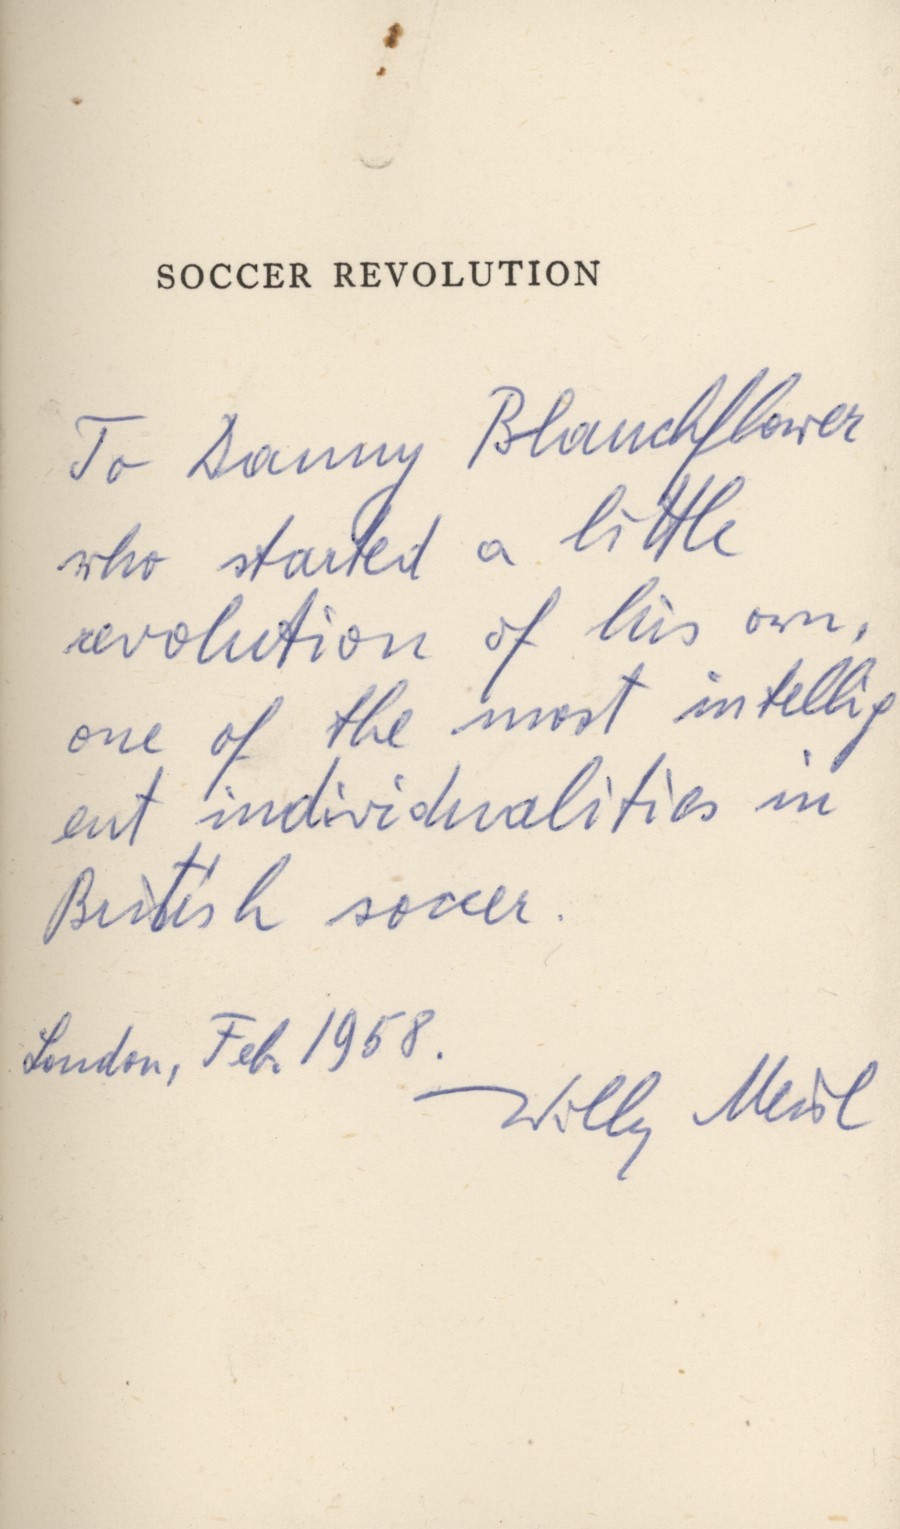 SOCCER REVOLUTION
To Danny Blanchflower
who started a little
revolution of his own,
one of the most intellig
ent individualities in
British soccer.
London, Feb. 1958.
Willy Meisl